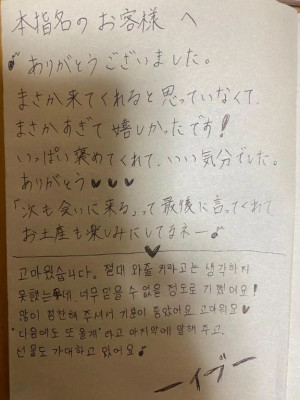 本指名のお客様へ
♪ありがとうございました。
まさか来てくれると思っていなくて、
まさかすぎて嬉しかったです!
いっぱい褒めてくれて、いい気分でした。
ありがとう♥♥♥
「次も会いに来る」って最後に言ってくれて
お土産も楽しみにしてるネー♪
♥
고마웠습니다. 절대 와줄 거라고는 생각하지
못했는데, 너무 믿을 수 없을 정도로 기뻤어요!
많이 칭찬해 주셔서 기분이 좋았어요. 고마워요♥
'다음에도 또 올게'라고 마지막에 말해 주고,
선물도 기대하고 있어요♪
ーイブー